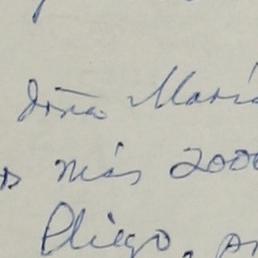 doña María
más 2000
Pliego,